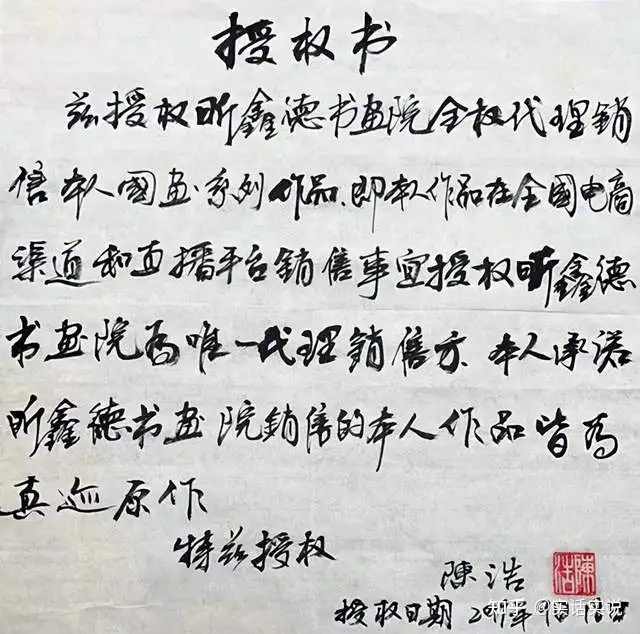 授权书
兹授权昕鑫德书画院全权代理銷
售本人國画系列作品、即本人作品在全國电商
渠道和直播平台銷售事宜授权昕鑫德
书画院為唯一代理銷售方、本人承诺
昕鑫德书画院銷售的本人作品皆為
真迹原作
特兹授权
陳浩
陳浩
授权日期
知乎 @实话实说